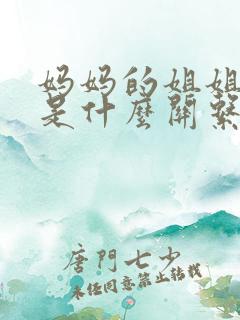 妈妈的姐姐
是什麼關繫
唐門七少
未经同意禁止转载